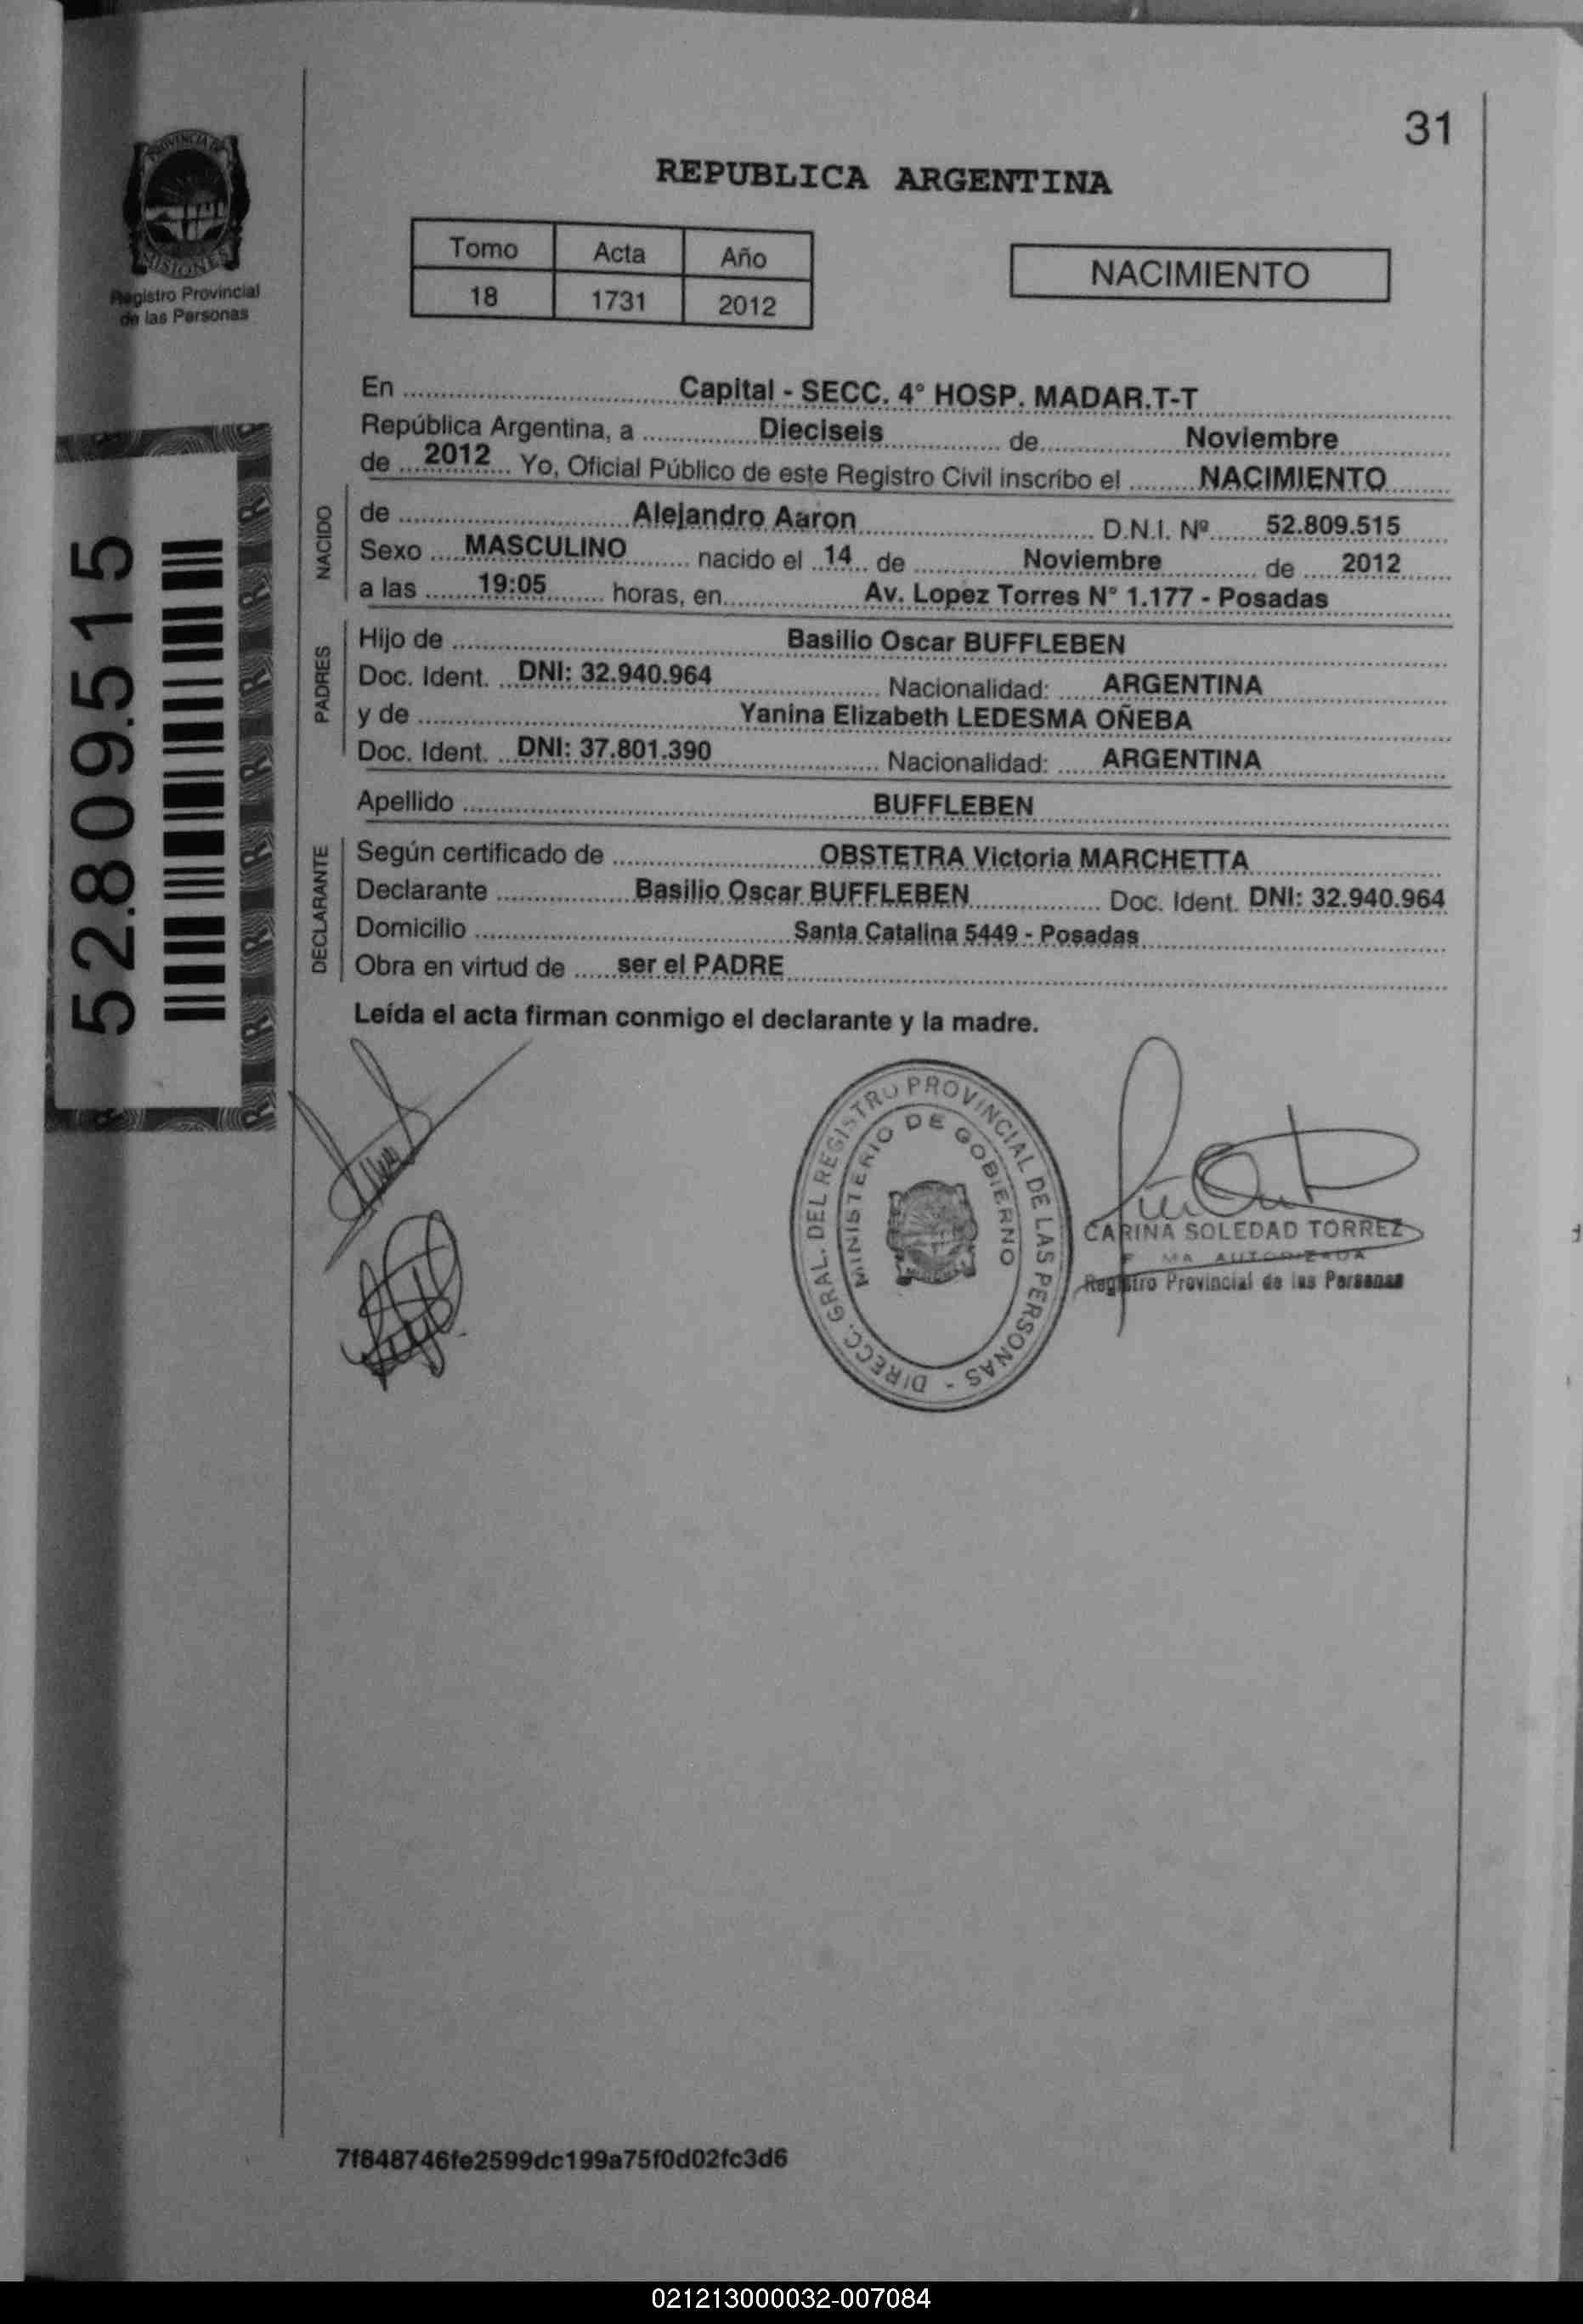 31
PROVINCIA DE
MISIONES
Registro Provincial
de las Personas
REPUBLICA ARGENTINA
Tomo Acta Año
18 1731 2012
NACIMIENTO
52.809.515
En Capital - SECC. 4° HOSP. MADAR.T-T
República Argentina, a Dieciseis de Noviembre
de 2012 Yo, Oficial Público de este Registro Civil inscribo el NACIMIENTO
NACIDO
de Alejandro Aaron D.N.I. Nº 52.809.515
Sexo MASCULINO nacido el 14 de Noviembre de 2012
a las 19:05 horas, en Av. Lopez Torres N° 1.177 - Posadas
PADRES
Hijo de Basilio Oscar BUFFLEBEN
Doc. Ident. DNI: 32.940.964 Nacionalidad: ARGENTINA
y de Yanina Elizabeth LEDESMA OÑEBA
Doc. Ident. DNI: 37.801.390 Nacionalidad: ARGENTINA
Apellido BUFFLEBEN
DECLARANTE
Según certificado de OBSTETRA Victoria MARCHETTA
Declarante Basilio Oscar BUFFLEBEN Doc. Ident. DNI: 32.940.964
Domicilio Santa Catalina 5449 - Posadas
Obra en virtud de ser el PADRE
Leída el acta firman conmigo el declarante y la madre.
DIRECC. GRAL. DEL REGISTRO PROVINCIAL DE LAS PERSONAS -
MINISTERIO DE GOBIERNO
CARINA SOLEDAD TORREZ
AUTORIZADA
Registro Provincial de las Personas
7f848746fe2599dc199a75f0d02fc3d6
021213000032-007084